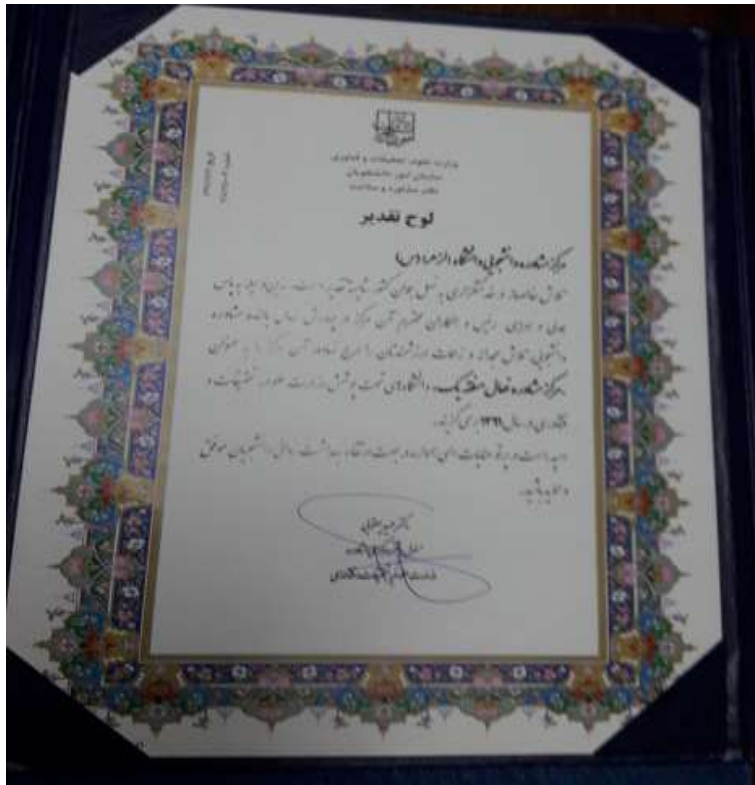 وزارت علوم، تحقیقات و فناوری
سازمان امور دانشجویان
دفتر مشاوره و سلامت
لوح تقدیر
مرکز مشاوره دانشجویی دانشگاه الزهرا (س)
تلاش خالصانه و خدمتگزاری به نسل جوان کشور شایسته تقدیر است. بدین وسیله به پاس
همدلی و همراهی رئیس و همکاران محترم آن مرکز در
دانشجویی، تلاش مجدانه و زحمات ارزشمندتان را ارج نهاده و آن مرکز را به عنوان
«مرکز مشاوره فعال منطقه یک» دانشگاه‌های تحت پوشش وزارت علوم، تحقیقات و
فناوری در سال ۱۳۹۱ برمی‌گزیند.
امید است در پرتو عنایات الهی همواره در جهت ارتقاء بهداشت روانی دانشجویان موفق
و مؤید باشید.
دکتر حمید یعقوبی
وزارت علوم، تحقیقات و فناوری